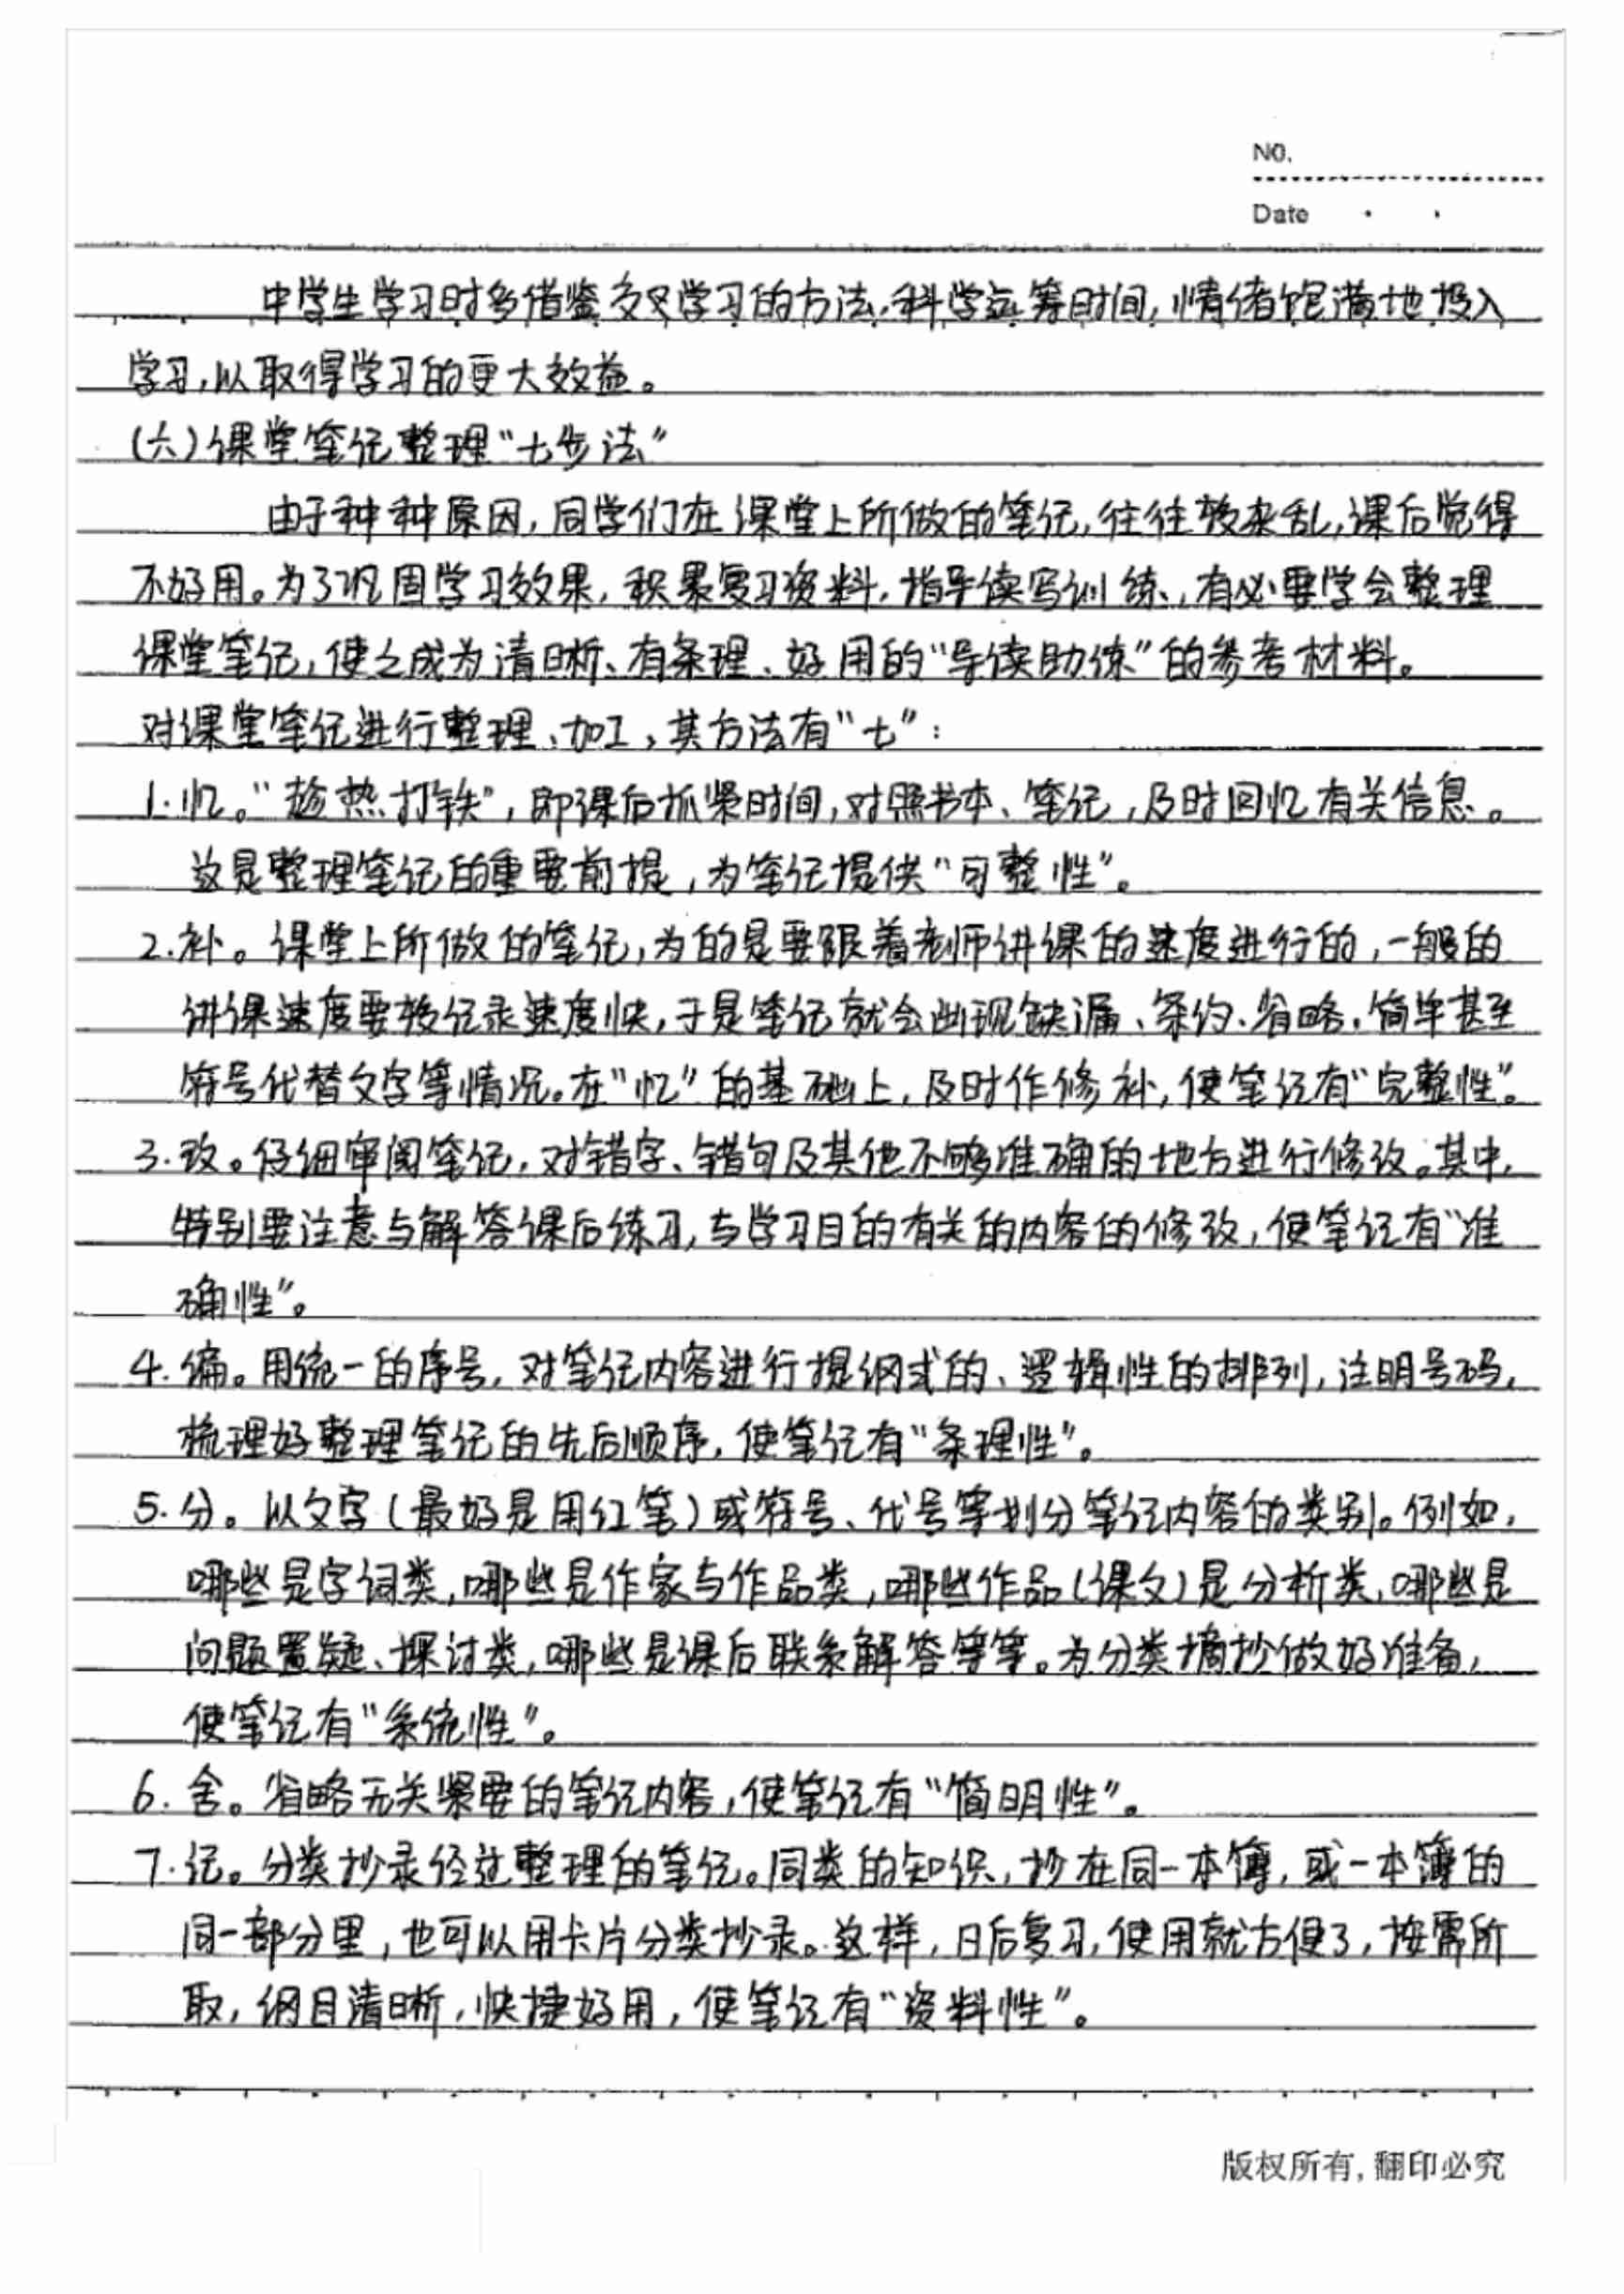 NO.
Date
中学生学习时多借鉴交叉学习的方法,科学运筹时间,情绪饱满地投入
学习,以取得学习的更大效益。
(六)课堂笔记整理“七步法”
由于种种原因,同学们在课堂上所做的笔记,往往较杂乱,课后觉得
不好用。为了巩固学习效果,积累复习资料,指导读写训练,有必要学会整理
课堂笔记,使之成为清晰、有条理、好用的“导读助练”的参考材料。
对课堂笔记进行整理、加工,其方法有“七”:
1.忆。“趁热打铁”,即课后抓紧时间,对照书本、笔记,及时回忆有关信息。
这是整理笔记的重要前提,为笔记提供“可整性”。
2.补。课堂上所做的笔记,为的是要跟着老师讲课的速度进行的,一般的
讲课速度要较记录速度快,于是笔记就会出现缺漏、条约、省略,简单甚至
符号代替文字等情况。在“忆”的基础上,及时作修补,使笔记有“完整性”。
3.改。仔细审阅笔记,对错字、错句及其他不够准确的地方进行修改。其中,
特别要注意与解答课后练习,与学习目的有关的内容的修改,使笔记有“准
确性”。
4.编。用统一的序号,对笔记内容进行提纲式的、逻辑性的排列,注明号码,
梳理好整理笔记的先后顺序,使笔记有“条理性”。
5.分。以文字(最好是用红笔)或符号、代号等划分笔记内容的类别。例如,
哪些是字词类,哪些是作家与作品类,哪些作品(课文)是分析类,哪些是
问题置疑、探讨类,哪些是课后联系解答等等。为分类摘抄做好准备,
使笔记有“系统性”。
6.舍。省略无关紧要的笔记内容,使笔记有“简明性”。
7.记。分类抄录经过整理的笔记。同类的知识,抄在同一本簿,或一本簿的
同一部分里,也可以用卡片分类抄录。这样,日后复习,使用就方便了,按需所
取,纲目清晰,快捷好用,使笔记有“资料性”。
版权所有,翻印必究